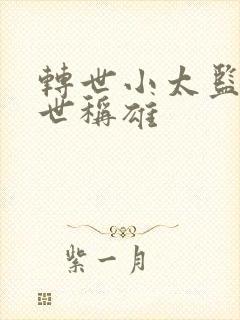 轉世小太監
世稱雄
紫一月